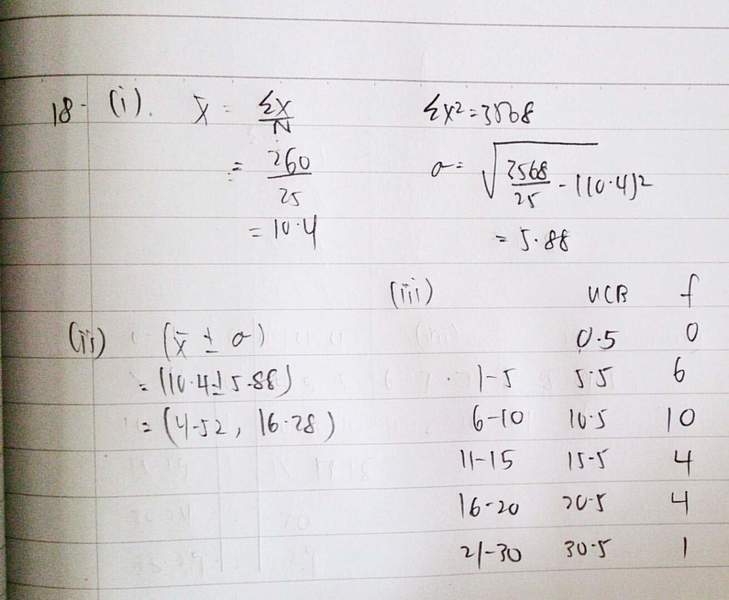 18. (i). x̄ = Σx/N    Σx² = 3568
= 260/25    σ = √(3568/25 - (10.4)²)
= 10.4    = 5.88
(iii)    UCB    f
(ii) (x̄ ± σ)    0.5    0
= (10.4 ± 5.88)    1-5    5.5    6
= (4.52, 16.28)    6-10    10.5    10
11-15    15.5    4
16-20    20.5    4
21-30    30.5    1